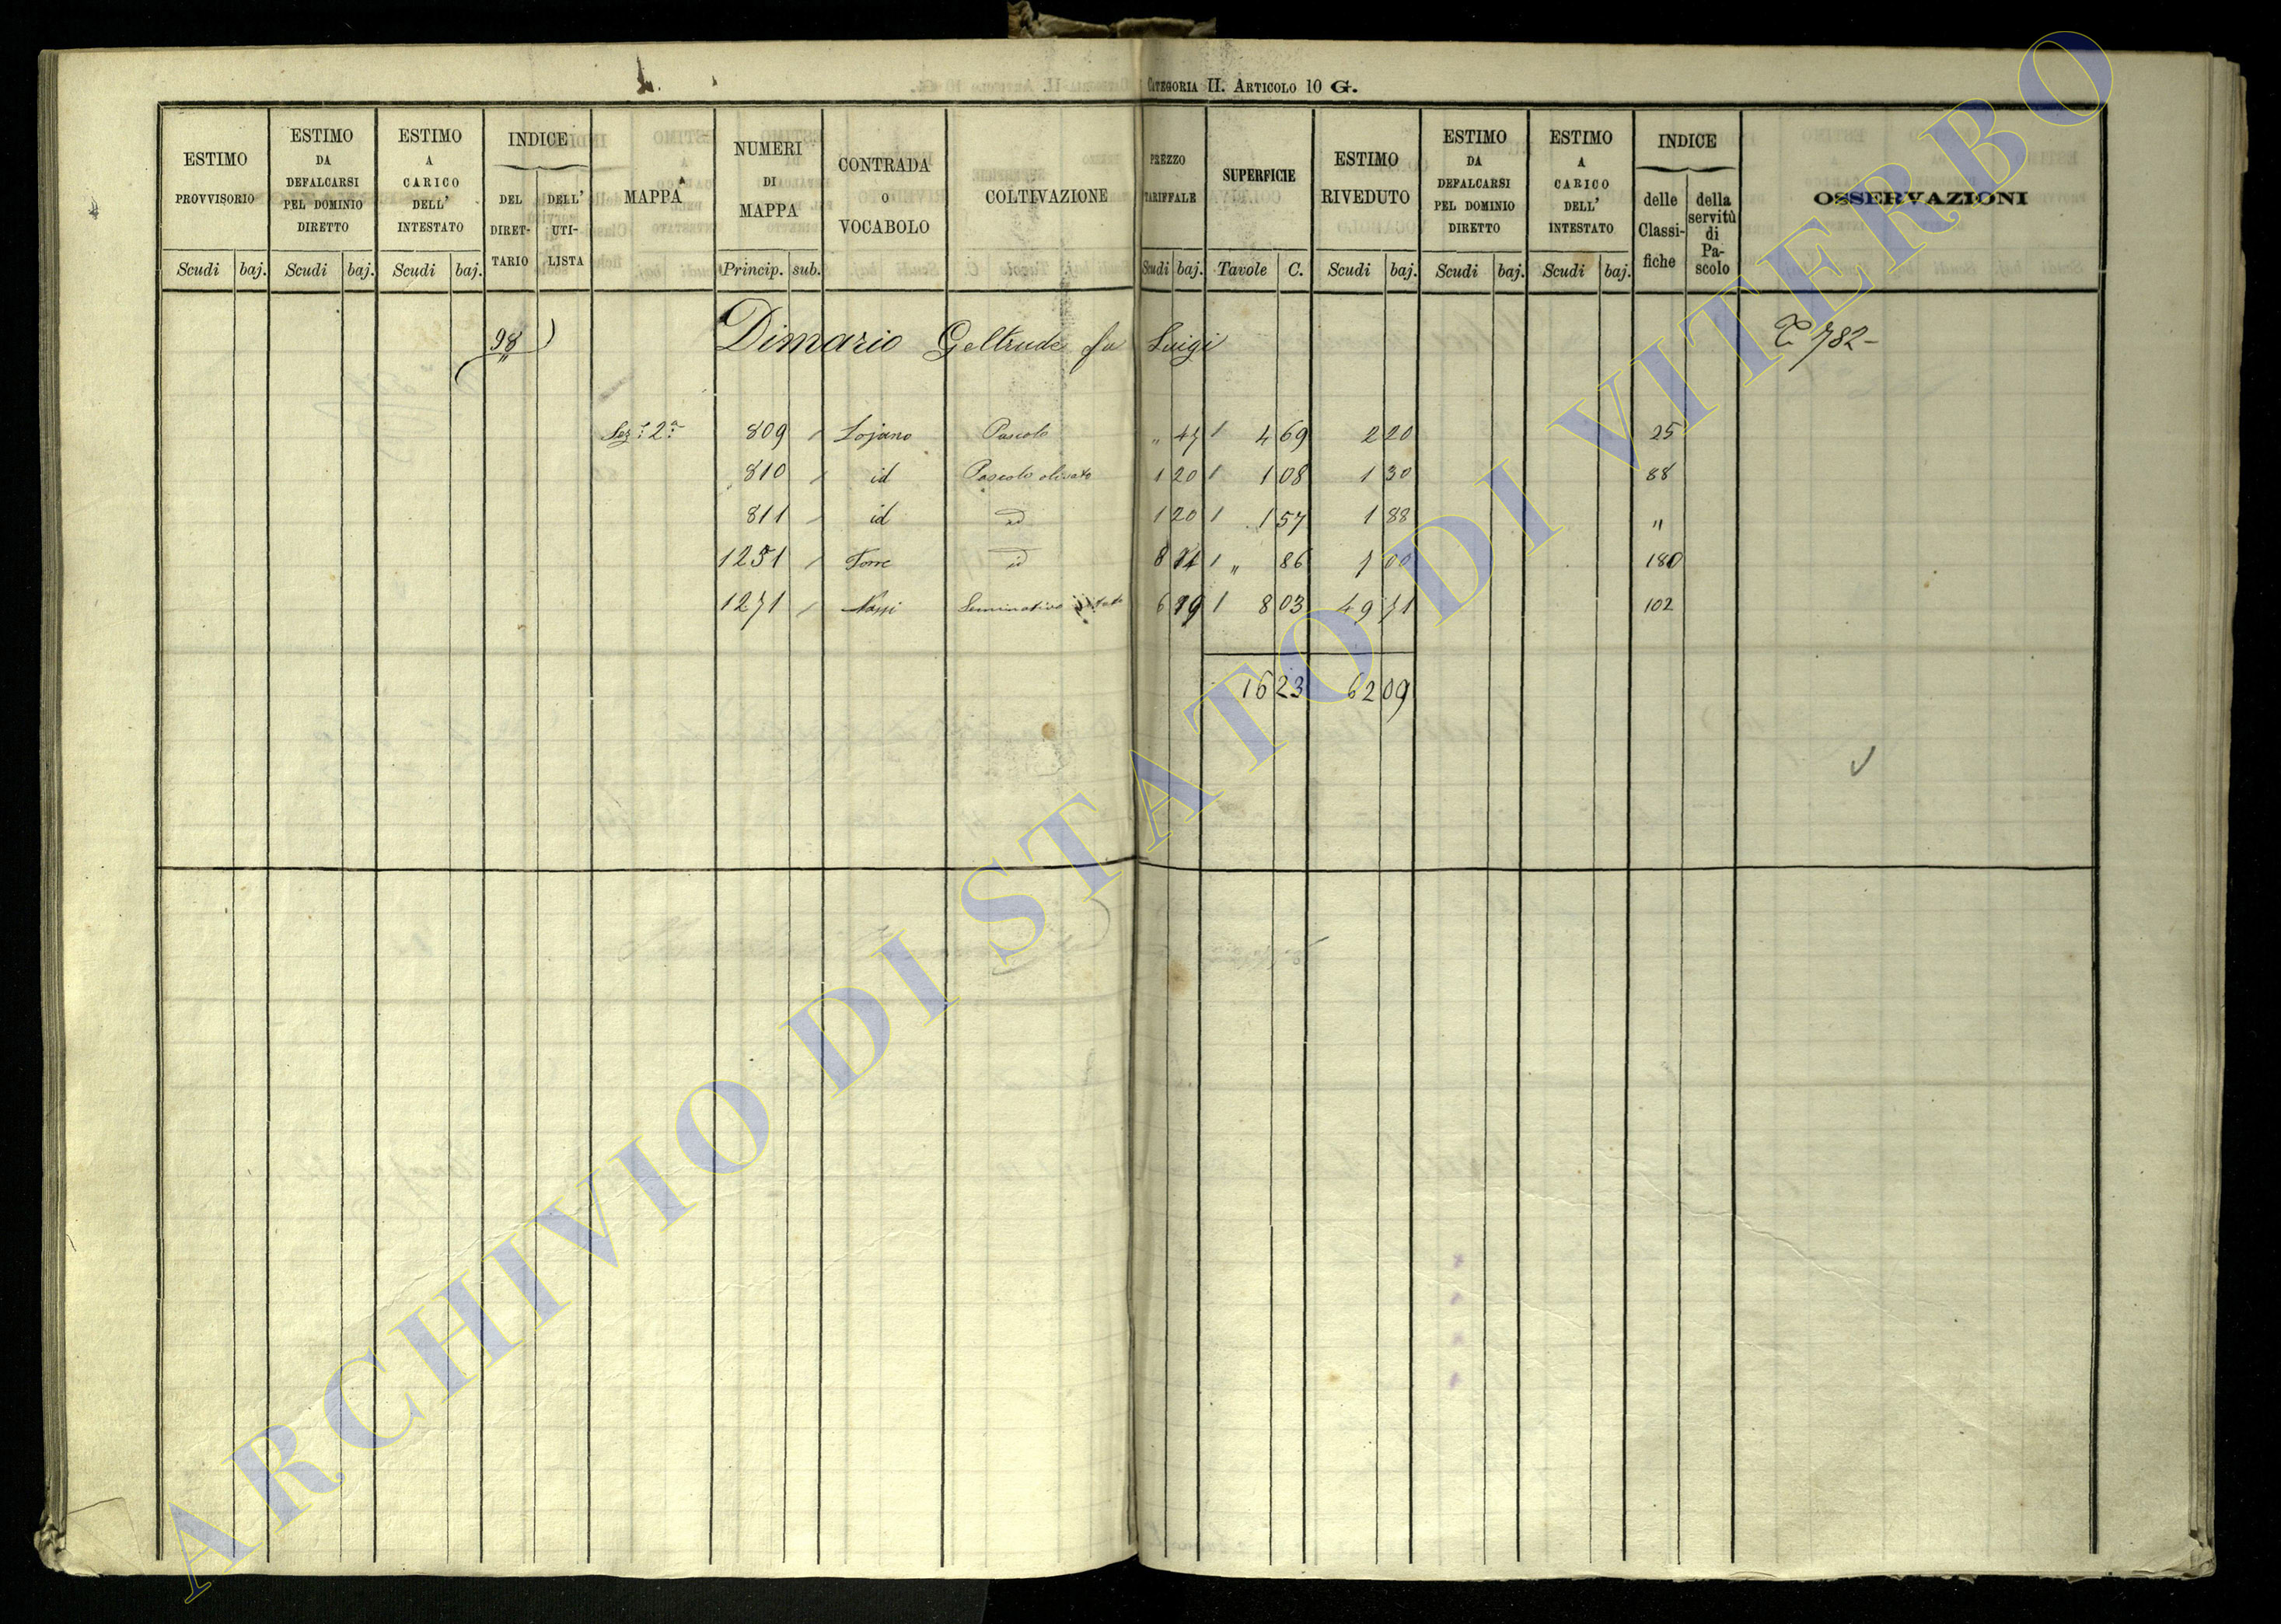 Categoria II. Articolo 10 G.
ESTIMO PROVVISORIO Scudi baj.
ESTIMO DA DEFALCARSI PEL DOMINIO DIRETTO Scudi baj.
ESTIMO A CARICO DELL' INTESTATO Scudi baj.
INDICE DEL DIRETTARIO DELL' UTILISTA
MAPPA
NUMERI DI MAPPA Princip. sub.
CONTRADA O VOCABOLO
COLTIVAZIONE
PREZZO TARIFFALE Scudi baj.
SUPERFICIE Tavole C.
ESTIMO RIVEDUTO Scudi baj.
ESTIMO DA DEFALCARSI PEL DOMINIO DIRETTO Scudi baj.
ESTIMO A CARICO DELL' INTESTATO Scudi baj.
INDICE delle Classifiche della servitù di Pascolo
OSSERVAZIONI
98 Dimario Geltrude fu Luigi 782
Sez. 2ª 809 Lojano Pascolo " 47 4 69 2 20 25
810 id Pascolo olivato 1 20 1 08 1 30 88
811 id id 1 20 1 57 1 88 "
1251 Torre id 8 " 86 7 00 180
1271 Seminativo 6 19 8 03 49 71 102
16 23 62 09
ARCHIVIO DI STATO DI VITERBO